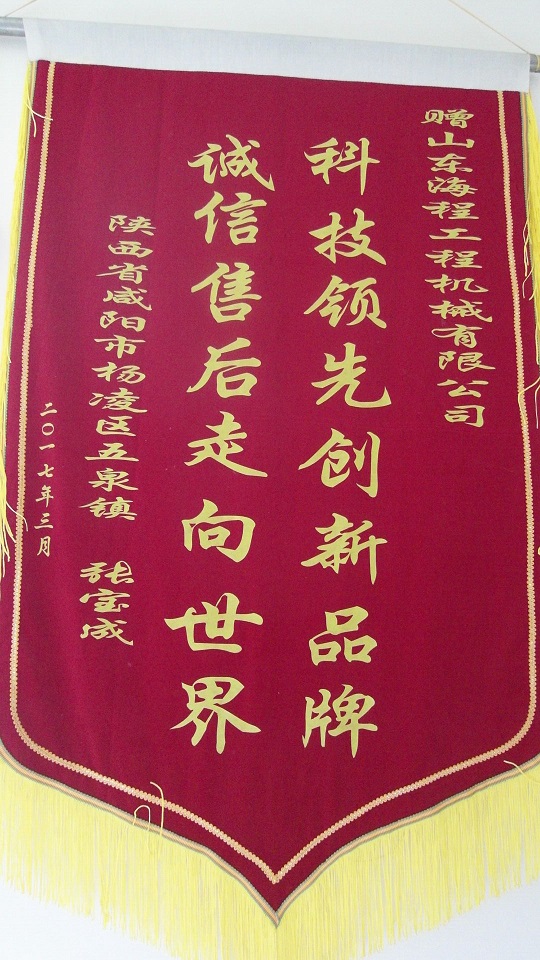 赠山东海程工程机械有限公司
科技领先创新品牌
诚信售后走向世界
陕西省咸阳市杨凌区五泉镇 张宝成
二〇一七年三月